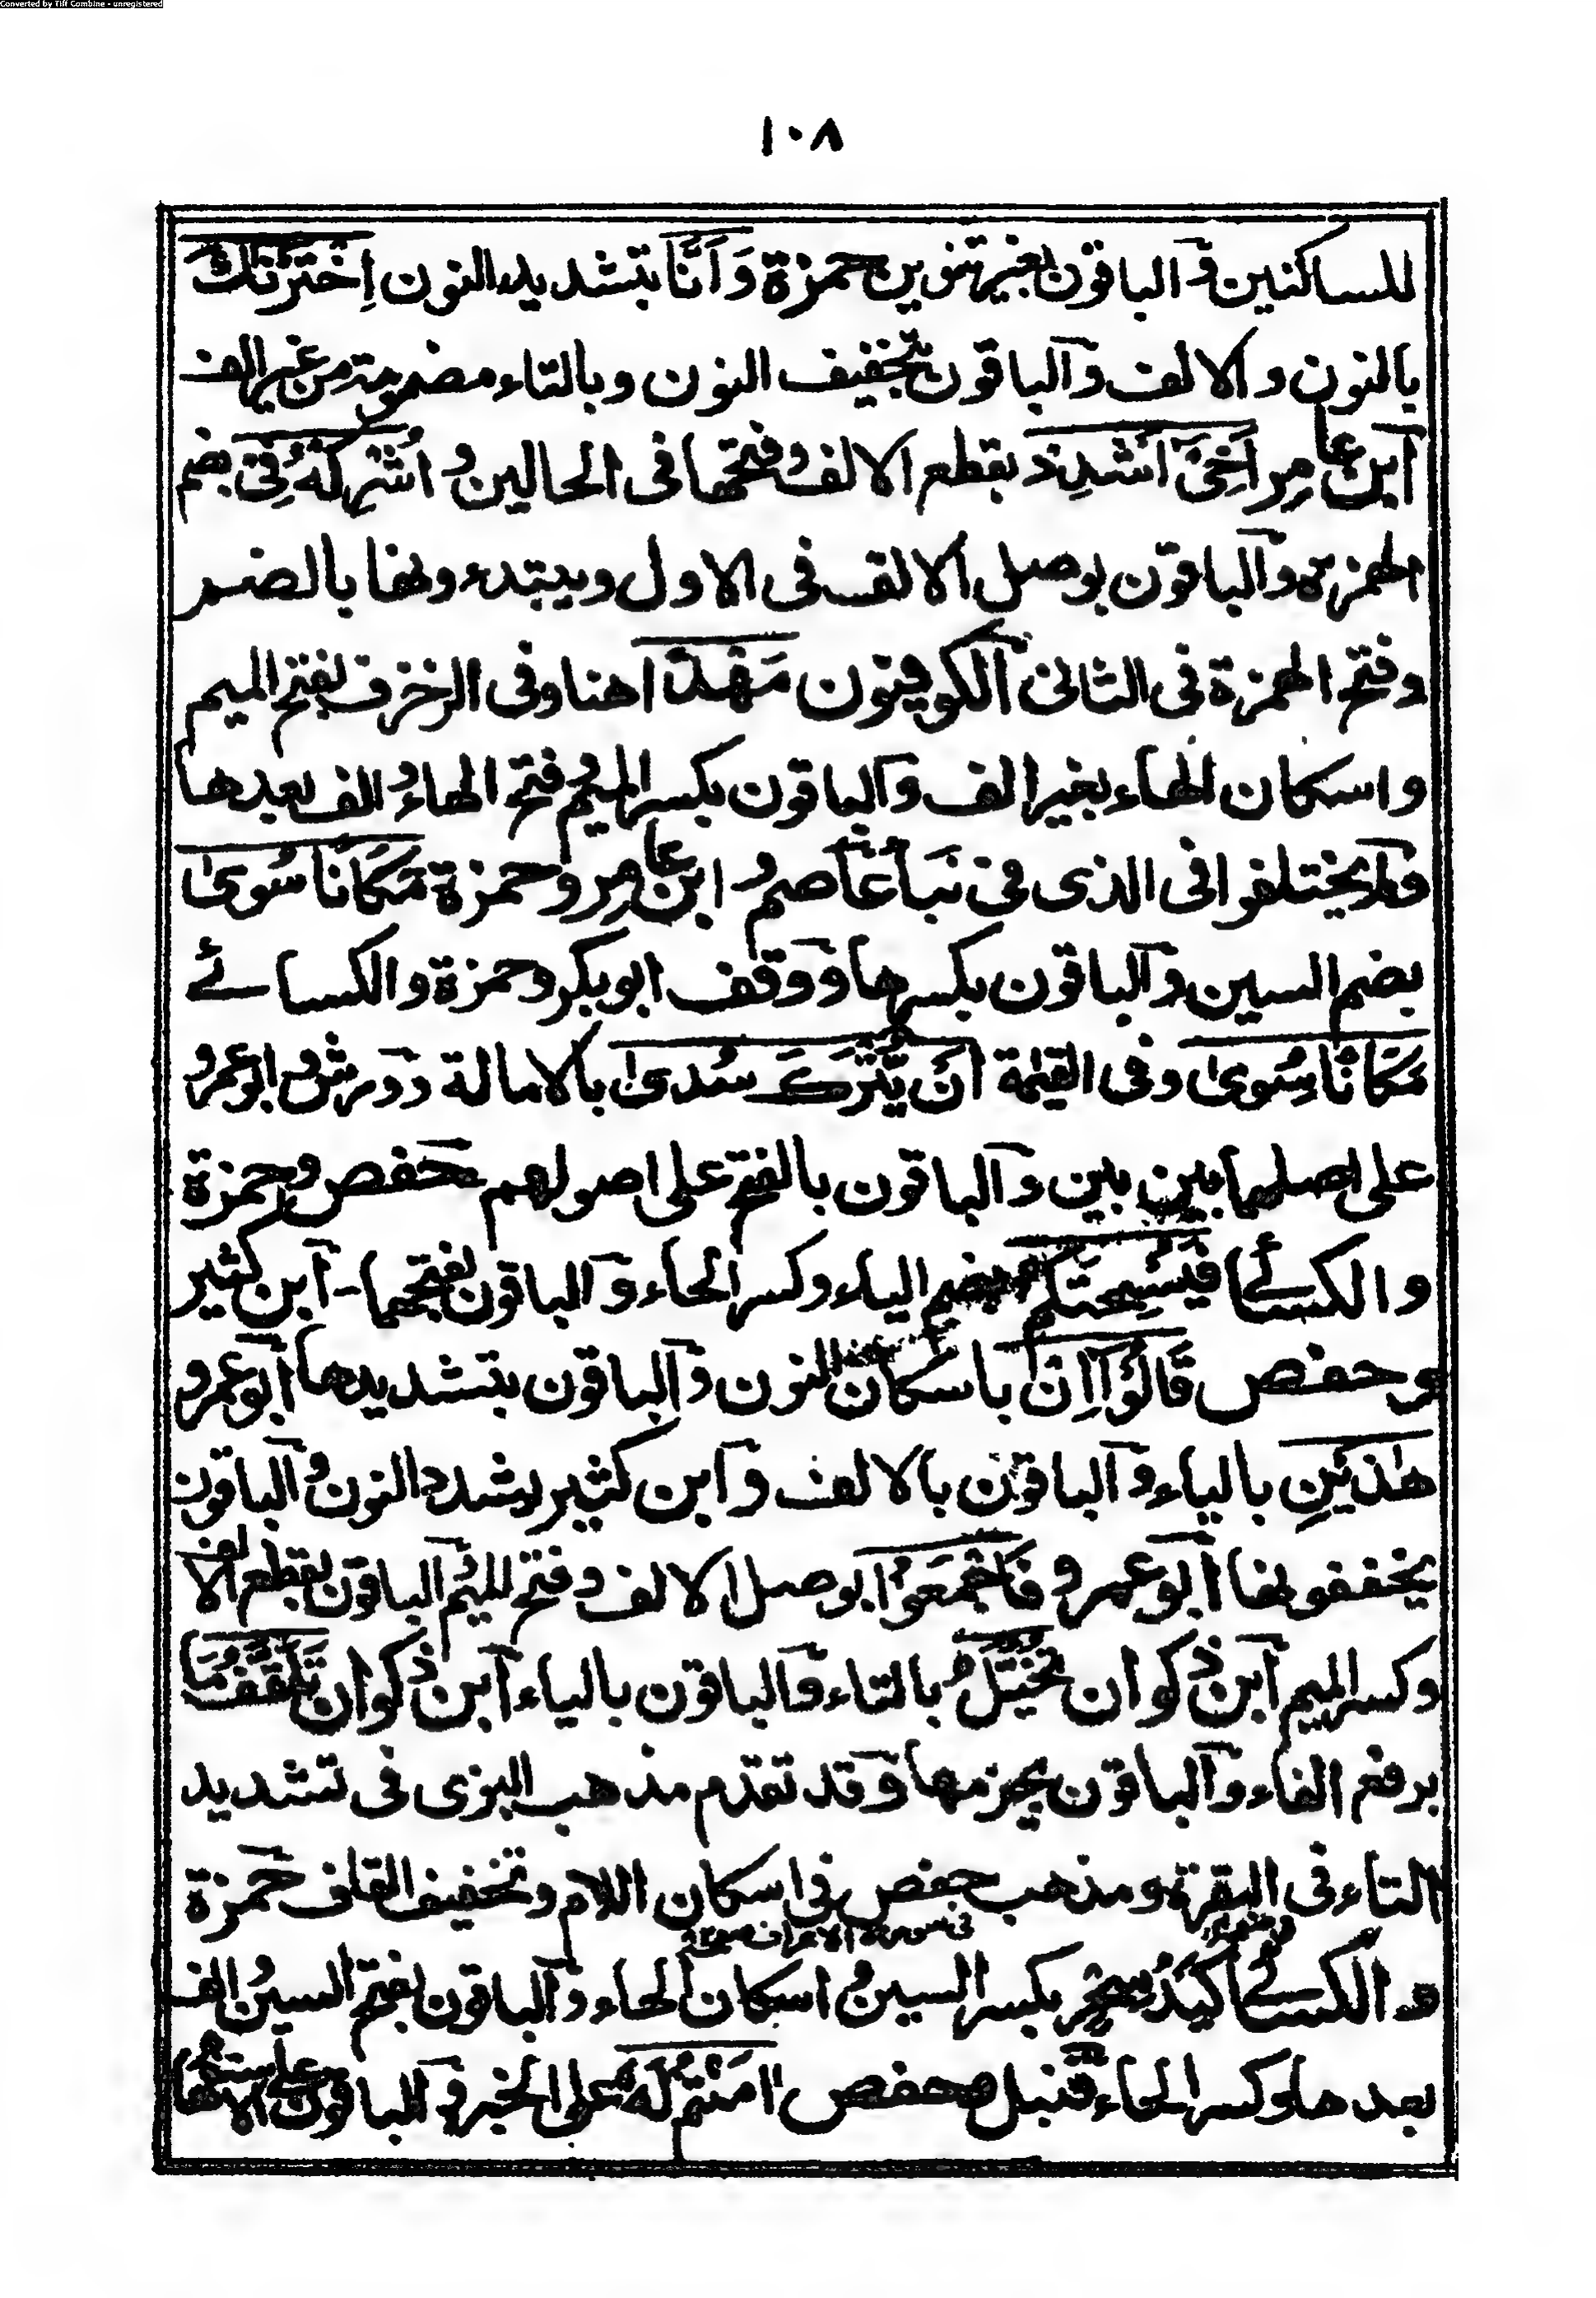 Converted by Tiff Combine - unregistered
١٠٨
للساكنين و الباقون بغير تنوين حمزة وَاَنَّا بتشديد النون اِخْتَرْنٰكَ
بالنون و الالف و الباقون بتخفيف النون و بالتاء مضمومة من غير الف
ابن عامر اَخِىَ اَشْدِدْ بقطع الالف و فتحها فى الحالين و اُشْرِكْهُ فِىْ بضم
الهمزة و الباقون بوصل الالف فى الاول و يبتدءونها بالضم
و فتح الهمزة فى الثانى الكوفيون مَهْدًا هنا و فى الزخرف بفتح الميم
و اسكان الهاء بغير الف و الباقون بكسر الميم و فتح الهاء و الف بعدها
و لم يختلفوا فى الذى فى نبأ عاصم و ابن عامر و حمزة مَكَانًا سُوىٰ
بضم السين و الباقون بكسرها و وقف ابو بكر و حمزة و الكسائے
مَكَانًا سُوىٰ و فى القيٰمة اَنْ يُّتْرَكَ سُدىٰ بالامالة و ورش و ابو عمرو
على اصلهما بين بين و الباقون بالفتح على اصولهم حفص و حمزة
و الكسائے فَيُسْحِتَكُمْ بضم الياء و كسر الحاء و الباقون بفتحهما - ابن كثير
و حفص قَالُوْا اِنْ باسكان النون و الباقون بتشديدها ابو عمرو
هٰذَيْنِ بالياء و الباقون بالالف و ابن كثير يشدد النون و الباقون
يخففونها ابو عمرو فَاجْمَعُوْا بوصل الالف و فتح الميم و الباقون بقطع الالف
و كسر الميم ابن ذكوان تُخَيَّلُ بالتاء و الباقون بالياء ابن ذكوان تَلَقَّفُ مَا
برفع الفاء و الباقون بجزمها و قد تقدم مذهب البزى فى تشديد
التاء فى البقرة و مذهب حفص فى اسكان اللام و تخفيف القاف حمزة
فى سورة الاعراف
و الكسائے كَيْدُ سِحْرٍ بكسر السين و اسكان الحاء و الباقون بفتح السين و الف
بعدها و كسر الحاء قنبل و حفص اٰمَنْتُمْ لَهٗ على الخبر و الباقون على الاستفهام